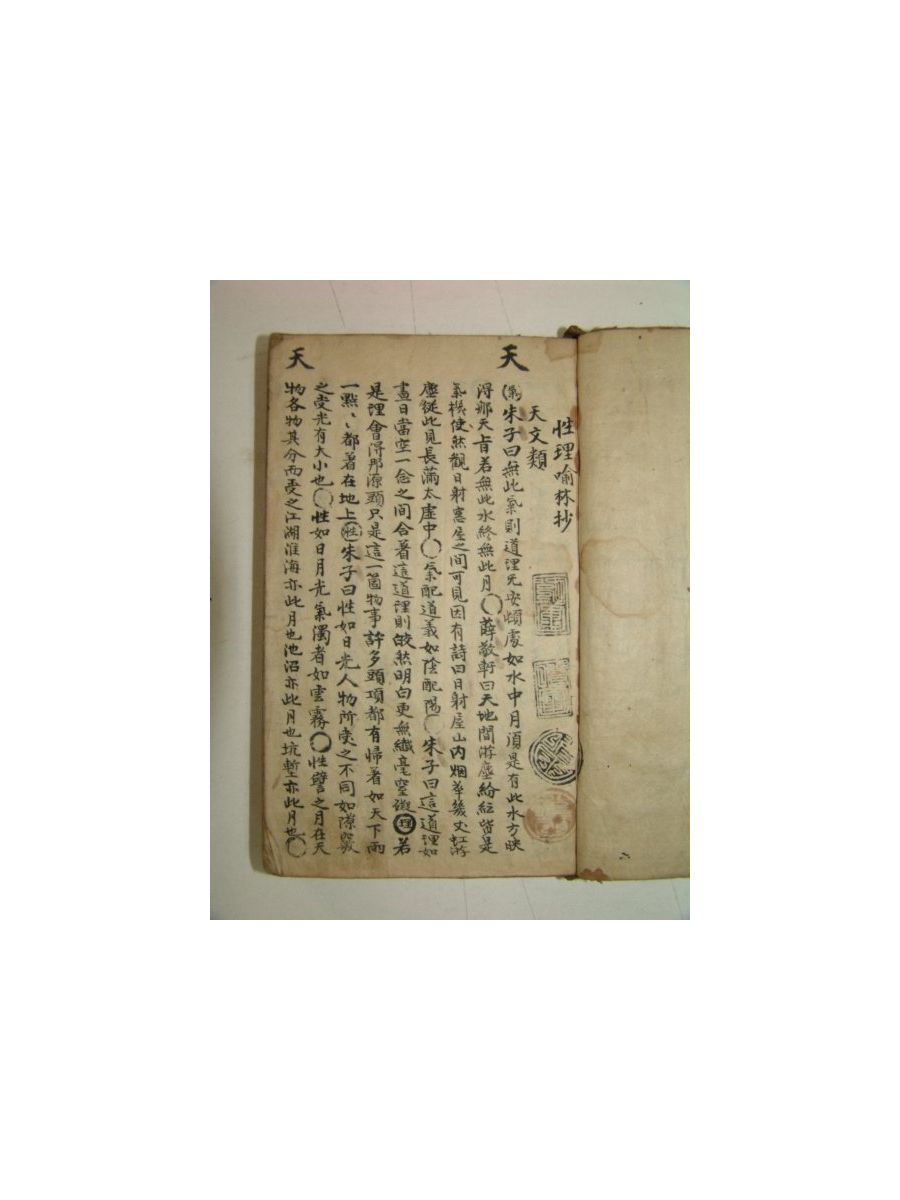 性理喻林抄
天文類
天
氣 朱子曰無此氣則道理无安頓處如水中月須是有此水方映
得那天肯若無此水終無此月〇薛敬軒曰天地間游塵紛紜皆是
氣機使然觀日射窓屋之間可見因有詩曰日射屋山內烟華幾丈虹游
塵從此見長滿太虛中〇氣配道義如陰配陽〇朱子曰這道理如
晝日當空一念之間合著這道理則皎然明白更無纖毫窒礙 理 若
是理會得那源頭只是這一箇物事許多頭項都有歸着如天下雨
一點〻都著在地上 性 朱子曰性如日光人物所受之不同如隙竅
之受光有大小也〇性如日月光氣濁者如雲霧〇性譬之月在天
天
物各物其分而受之江湖淮海亦此月也池沼亦此月也坑塹亦此月也〇